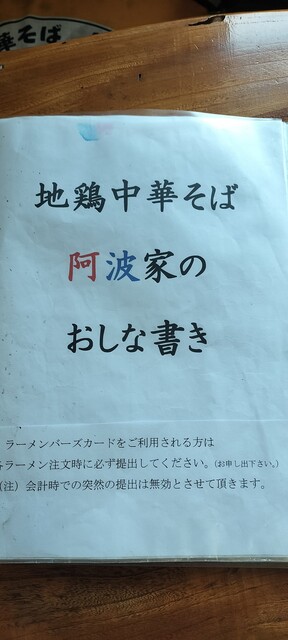 華そば
地鶏中華そば
阿波家の
おしな書き
ラーメンバーズカードをご利用される方は
各ラーメン注文時に必ず提出してください。(お申し出下さい。)
(注)会計時での突然の提出は無効とさせて頂きます。